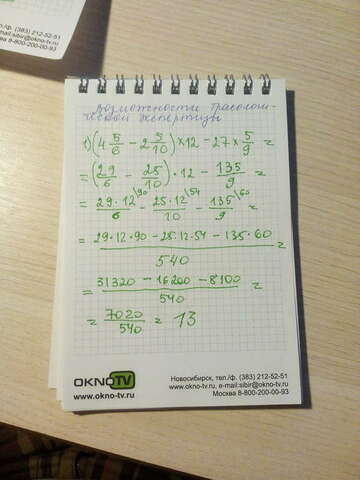 (383) 212-52-51
e-mail:sibir@okno-tv.ru
Москва 8-800-200-00-93
Возможности трасологи-
ческой экспертизы
1) (4 5/6 − 2 5/10) × 12 − 27 × 5/9 =
= (29/6 − 25/10) · 12 − 135/9 =
= 29·12/6 \90 − 25·12/10 \54 − 135/9 \60 =
= 29·12·90 − 25·12·54 − 135·60 / 540 =
= 31320 − 16200 − 8100 / 540 =
= 7020/540 = 13
OKNO TV
www.okno-tv.ru
Новосибирск, тел./ф. (383) 212-52-51
www.okno-tv.ru, e-mail:sibir@okno-tv.ru
Москва 8-800-200-00-93